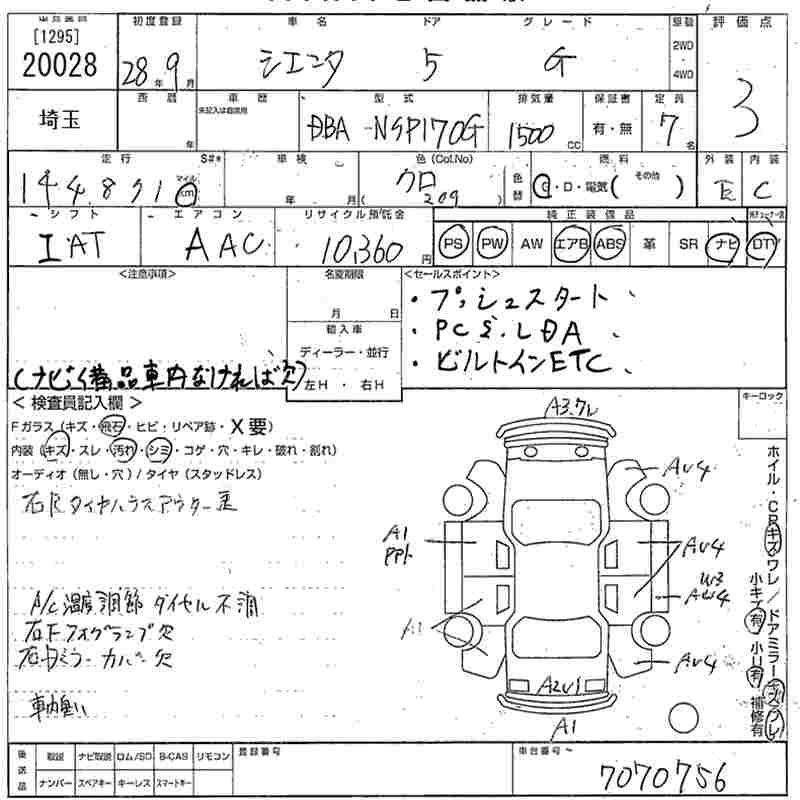 [1295]
20028
埼玉
初度登録 28年 9月
車名 シエンタ
ドア 5
グレード G
2WD
4WD
評価点 3
西暦 年
車歴
未記入は自家用
型式 DBA-NSP170G
排気量 1500 CC
保証書 有・無
定員 7名
走行 S#*
マイル km
車検 年 月
色(Col.No) クロ (209)
色替
燃料 G・D・電気( その他 )
外装 E
内装 C
シフト IAT
エアコン AAC
リサイクル預託金 10,360 円
純正装備品
PS PW AW エアB ABS 革 SR ナビ DTV
<注意事項>
(ナビ備品車内なければ欠)
名変期限 月 日
輸入車
ディーラー・並行
左H・右H
<セールスポイント>
・プッシュスタート
・PCS.LDA
・ビルトインETC
キーロック
<検査員記入欄>
Fガラス(キズ・飛石・ヒビ・リペア跡・X要)
内装(キズ・スレ・汚れ・シミ・コゲ・穴・キレ・破れ・割れ)
オーディオ(無し・穴)/タイヤ(スタッドレス)
A/C温度調節ダイヤル不滑
右Fフォグランプ欠
右Dミラーカバー欠
A3.ワレ
AU4
A1
AU4
W3
A1
AU4
A2U1
A1
後送品
取説 ナビ取説 ロム/SD B-CAS リモコン
ナンバー スペアキー キーレス スマートキー
登録番号
車台番号~
7070756